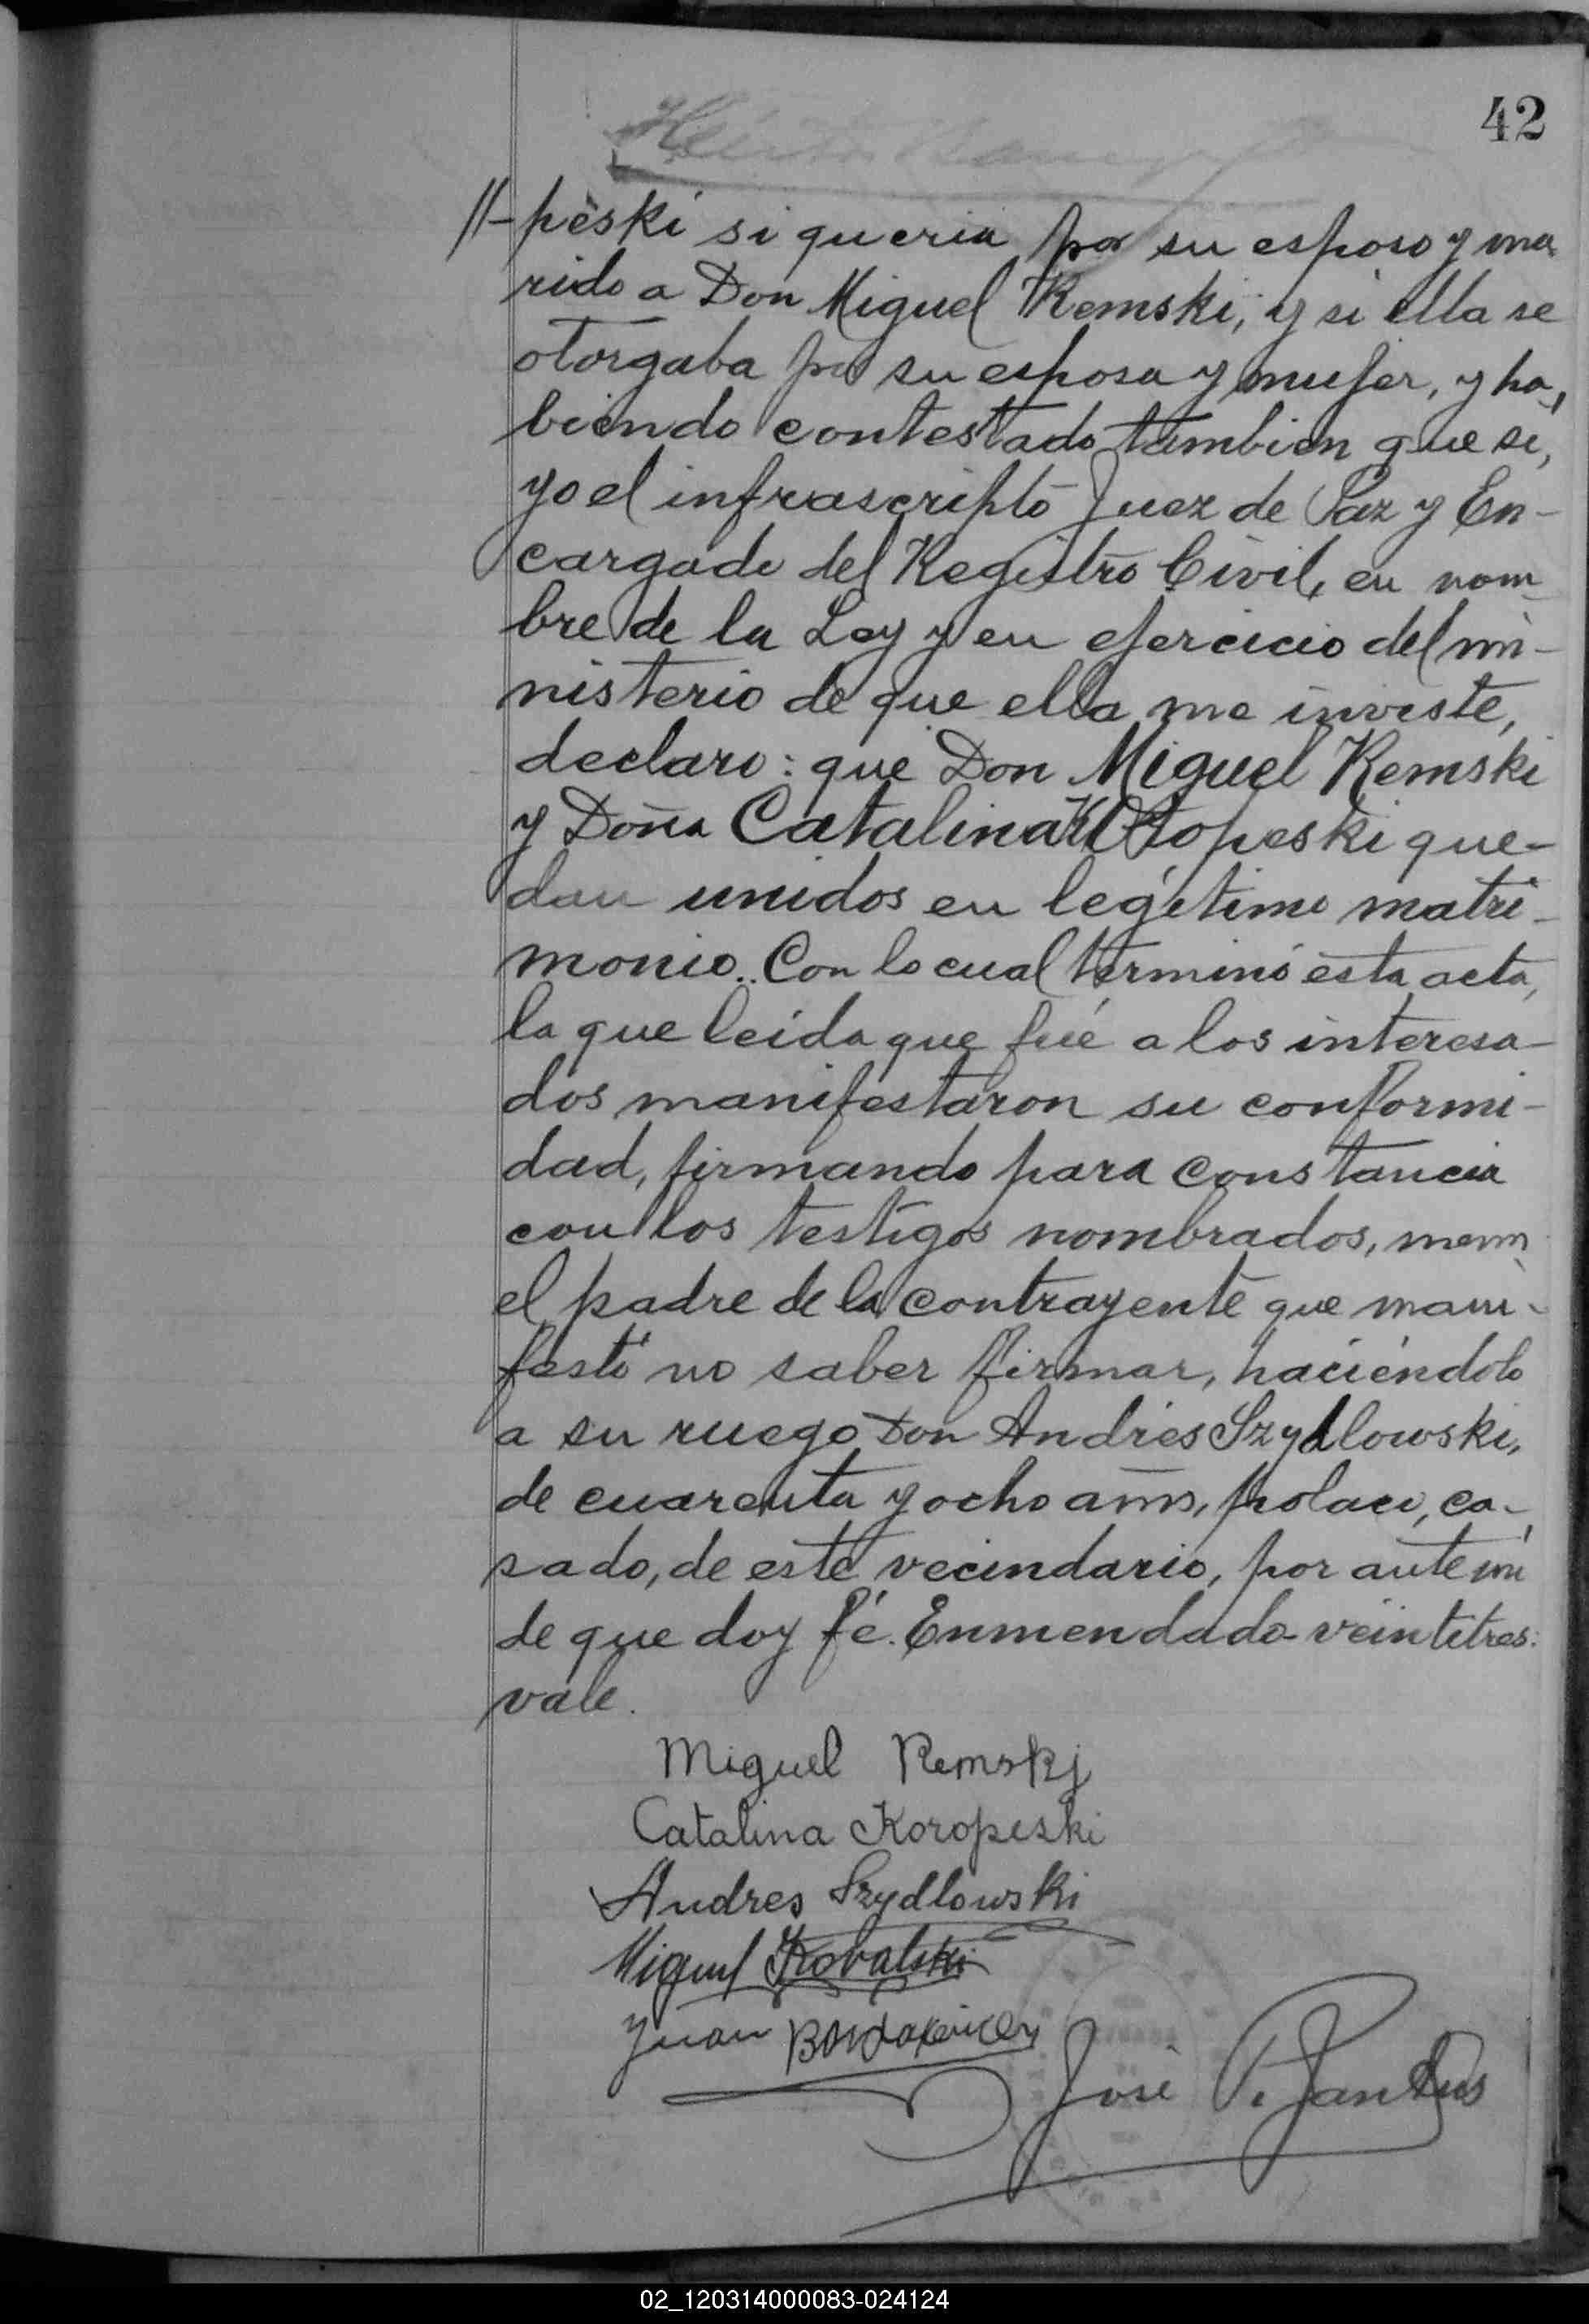 42
//-peski si queria por su esposo y ma
rido a Don Miguel Remski, y si ella se
otorgaba por su esposa y mujer, y ha,
biendo contestado tambien que si,
yo el infrascripto Juez de Paz y En-
cargado del Registro Civil, en nom
bre de la Ley y en ejercicio del mi-
nisterio de que ella me inviste,
declaro: que Don Miguel Remski
y Doña Catalina Koropeski que-
dan unidos en legítimo matri-
monio. Con lo cual terminó esta acta,
la que leída que fué a los interesa-
dos manifestaron su conformi-
dad, firmando para constancia
con los testigos nombrados, menos
el padre de la contrayente que mani-
festó no saber firmar, haciéndolo
a su ruego Don Andrés Szydlowski,
de cuarenta y ocho años, polaco, ca-
sado, de este vecindario, por ante mí
de que doy fé. Enmendado-veintitres:
vale.
Miguel Remski
Catalina Koropeski
Andres Szydlowski
Miguel Kovalski
Juan
José
02_120314000083-024124